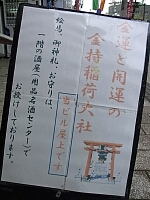 金運と開運の
金持稲荷大社
当ビル屋上です
絵馬、御神札、お守りは、
一階の酒屋(用品名酒センター)で
お授けしております。